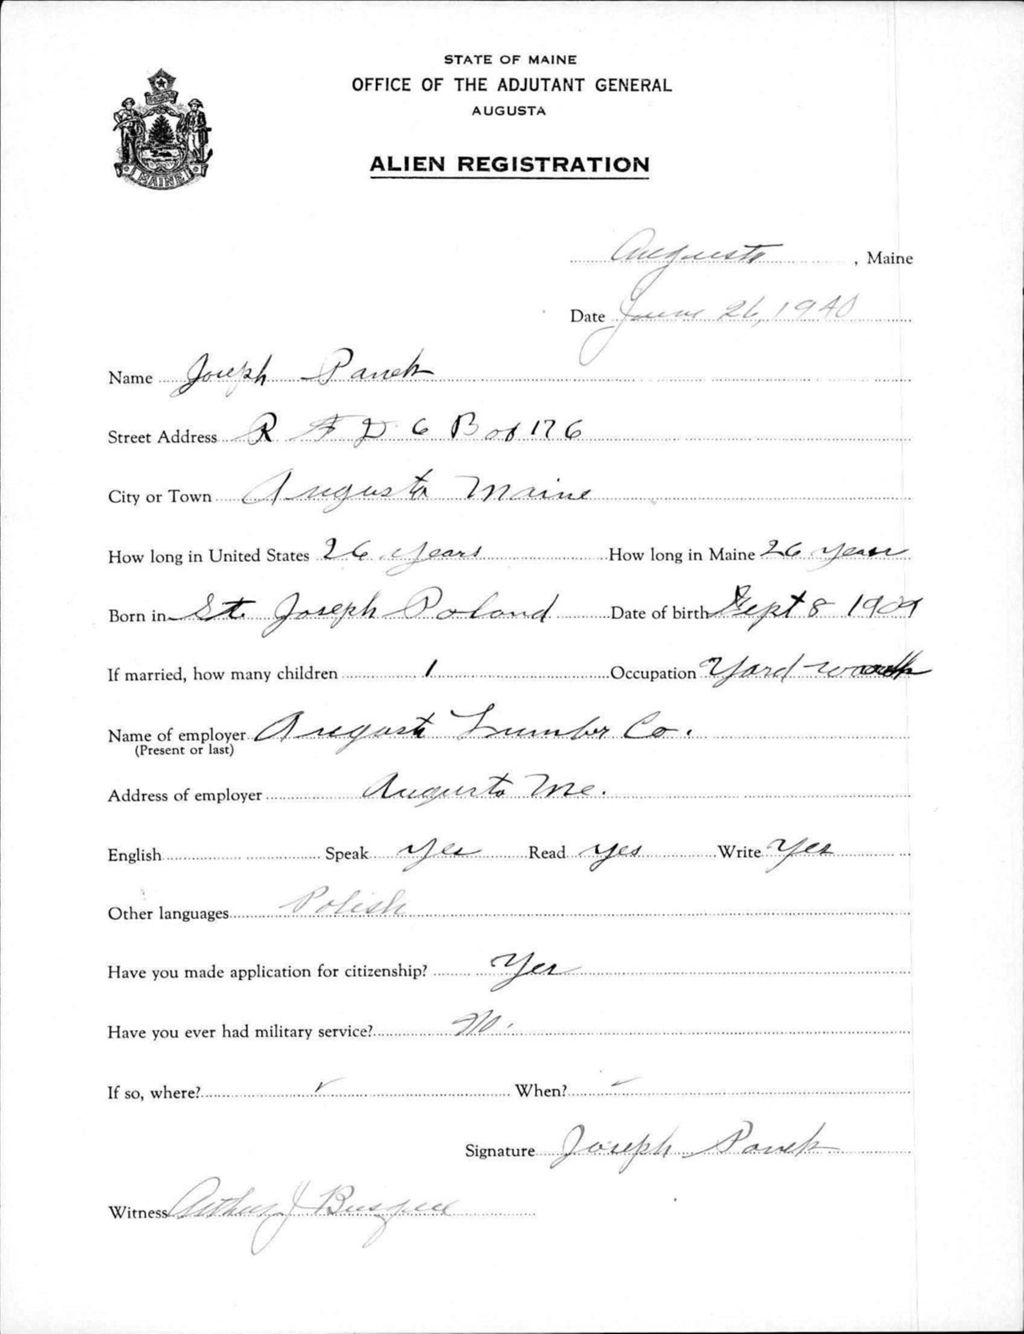 STATE OF MAINE
OFFICE OF THE ADJUTANT GENERAL
AUGUSTA
MAINE
ALIEN REGISTRATION
Augusta, Maine
Date June 26, 1940
Name Joseph Panek
Street Address R F D 6 Box 176
City or Town Augusta Maine
How long in United States 26 years How long in Maine 26 years
Born in St. Joseph Poland Date of birth Sept 8 1909
If married, how many children 1 Occupation Yard work
Name of employer Augusta Lumber Co.
(Present or last)
Address of employer Augusta Me.
English Speak Yes Read yes Write Yes
Other languages Polish
Have you made application for citizenship? Yes
Have you ever had military service? No.
If so, where? ✓ When? –
Signature Joseph Panek
Witness Arthur J